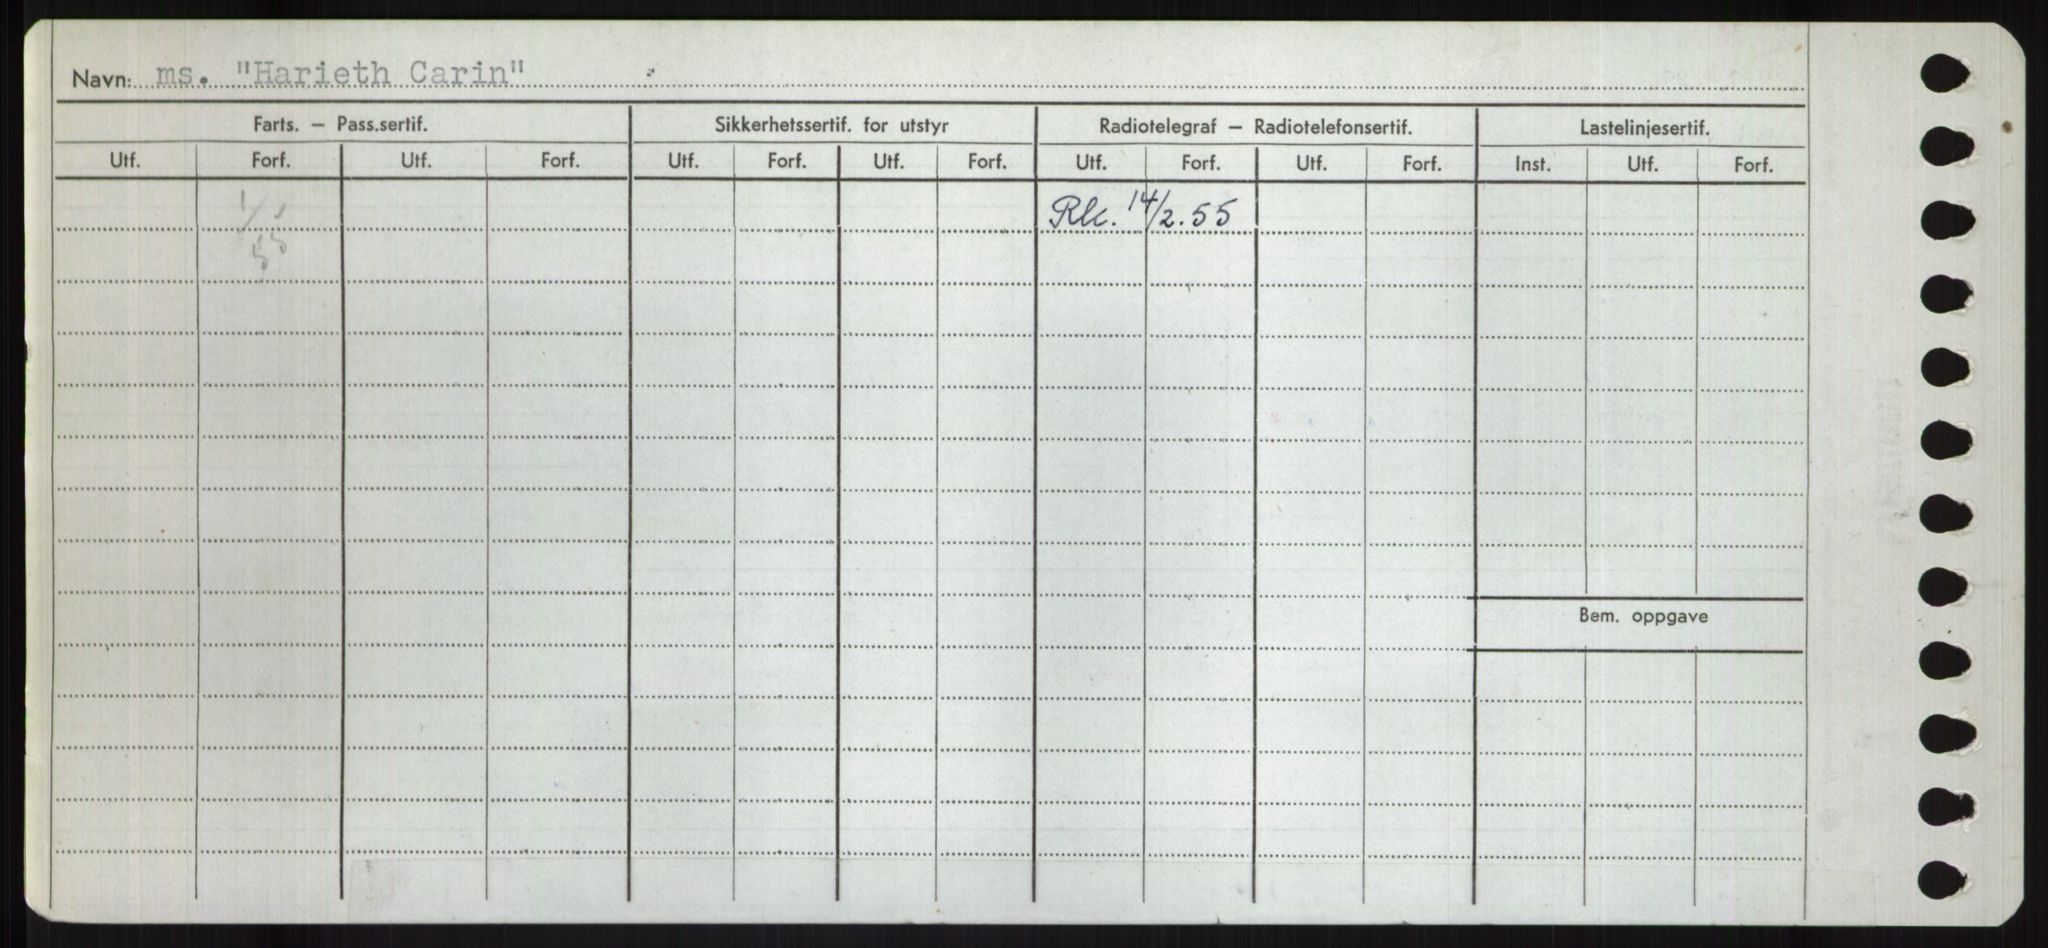 Navn: ms. "Harieth Carin"
Farts. — Pass.sertif. Sikkerhetssertif. for utstyr Radiotelegraf — Radiotelefonsertif. Lastelinjesertif.
Utf. Forf. Utf. Forf. Utf. Forf. Utf. Forf. Utf. Forf. Utf. Forf. Inst. Utf. Forf.
1/5 Rk. 14/2.55
55
Bem. oppgave